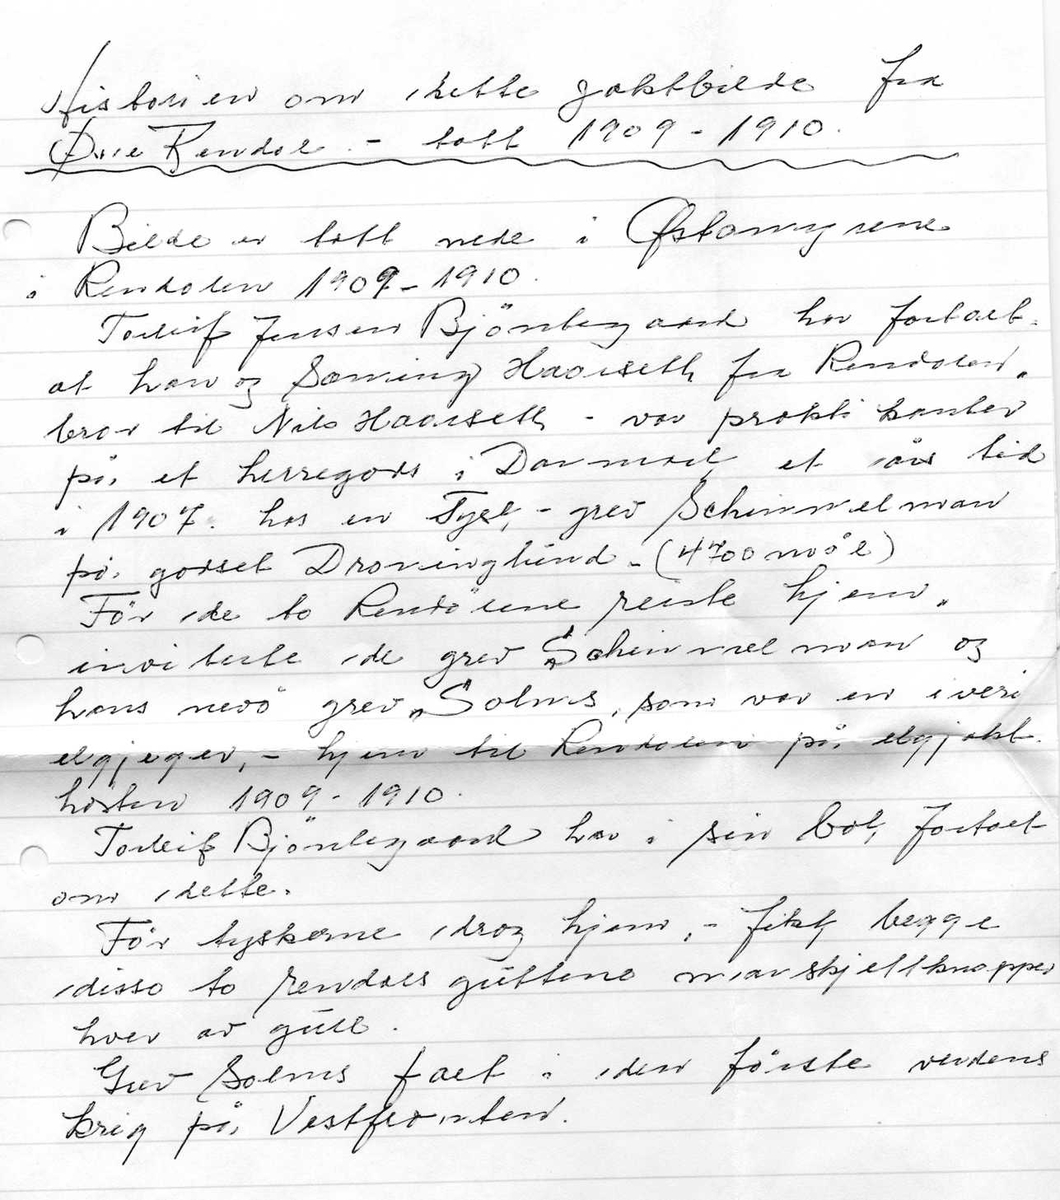 Historien om dette jaktbilde fra
Øvre Rendal - tatt 1909 - 1910.
Bilde er tatt nede i Østamyrene
i Rendalen 1909 - 1910.
Torleif Jensen Björnbegaard har fortalt
at han og Sæming Haarseth fra Rendalen,
bror til Nils Haarseth - var praktikanter
på et herregods i Danmark et års tid
i 1907. hos en Tysk, - grev Schimmelman
på godset Droninglund - (4700 mål)
Før de to Rendölene reiste hjem,
inviterte de grev "Schimmelman og
hans nevö grev "Solms, som var en iveri
elgjeger, - hjem til Rendalen på elgjakt
høsten 1909 - 1910.
Torleif Björnbegaard har i sin bok fortalt
om dette.
Før tyskerne drog hjem, - fikk begge
disse to rendalsguttene manskjettknapper
hver av gull.
Grev Solms falt i den förste verdens
krig på Vestfronten.